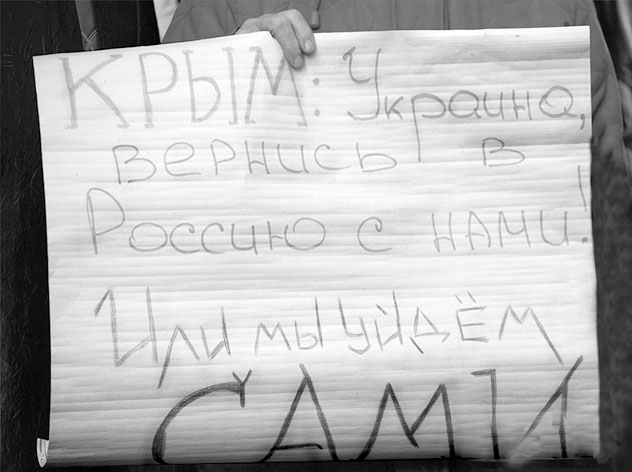 КРЫМ: Украина,
вернись в
Россию с нами!
Или мы уйдём
САМИ